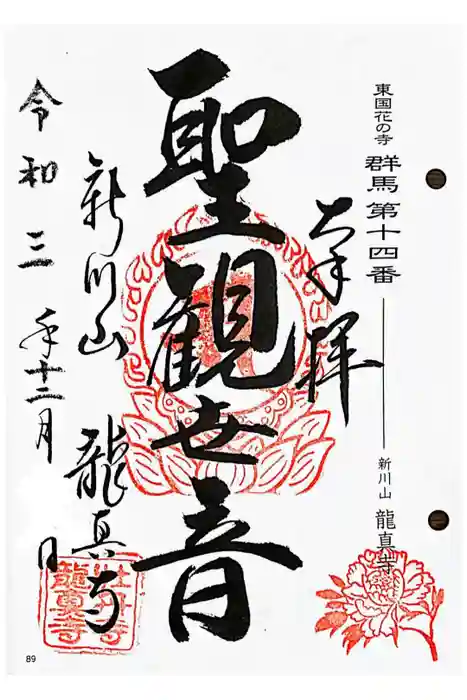 東国花の寺 群馬 第十四番 新川山 龍真寺
奉拝
聖観世音
新川山 龍真寺
令和三年十二月 日
牡丹寺
龍真寺
89